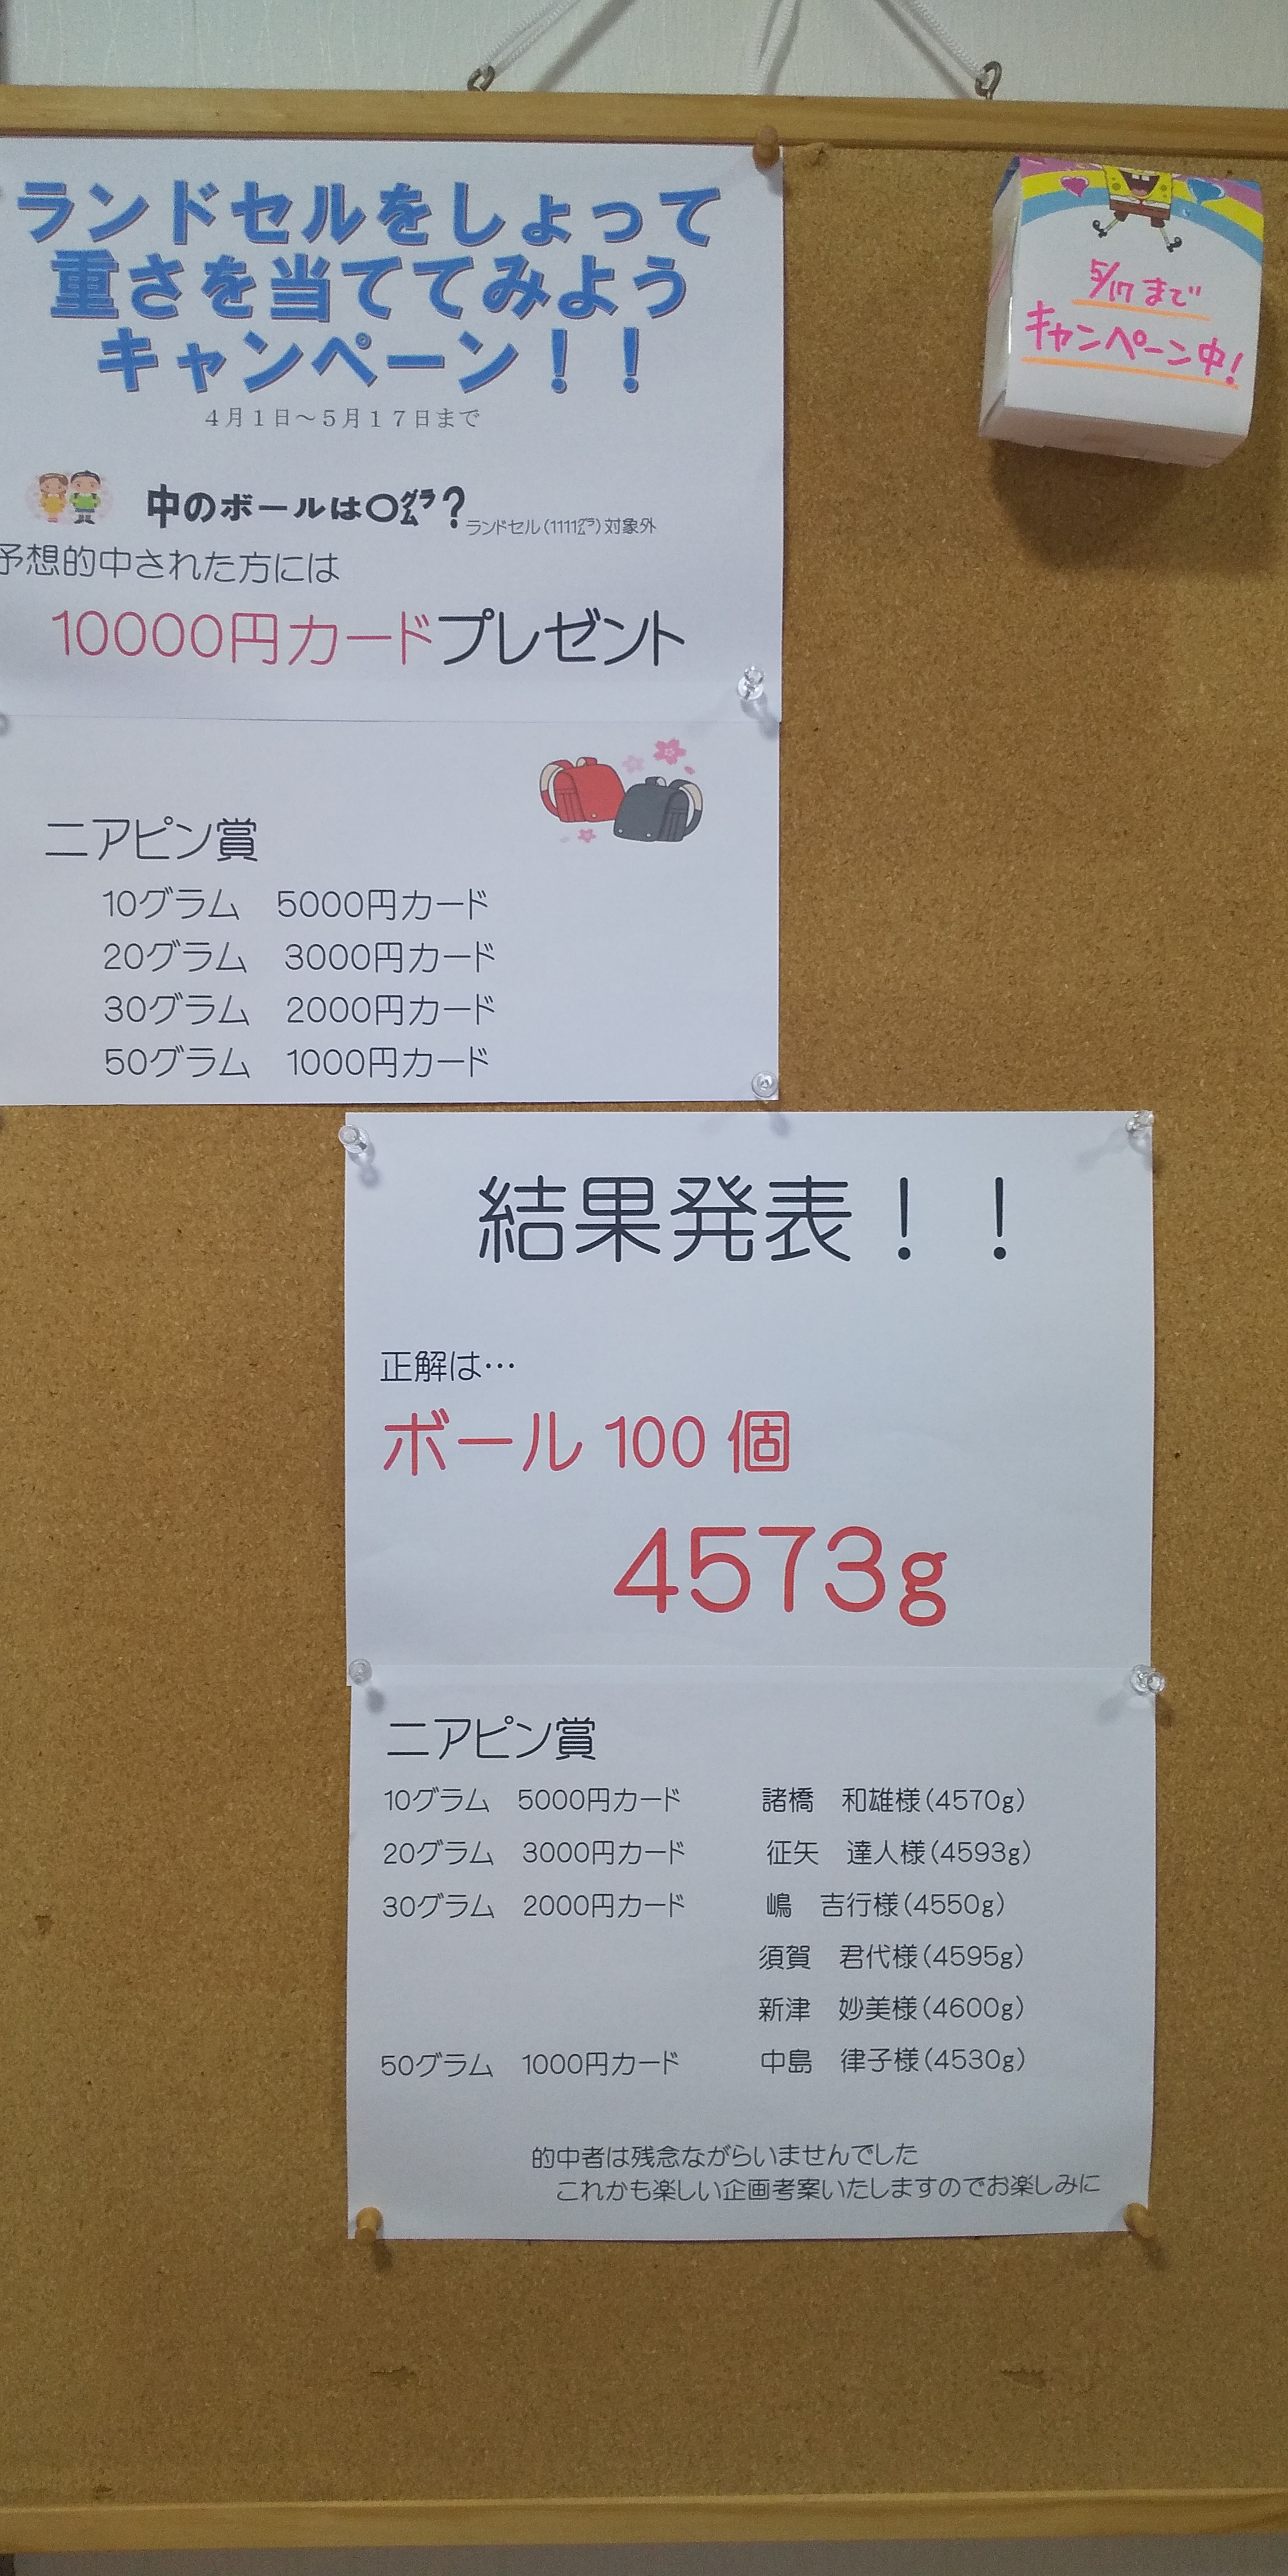 ランドセルをしょって
重さを当ててみよう
キャンペーン！！
４月１日～５月１７日まで
中のボールは〇㌘？
ランドセル（1111㌘）対象外
予想的中された方には
10000円カードプレゼント
ニアピン賞
10グラム　5000円カード
20グラム　3000円カード
30グラム　2000円カード
50グラム　1000円カード
5/17まで
キャンペーン中!
結果発表！！
正解は…
ボール 100 個
4573g
ニアピン賞
10グラム　5000円カード　諸橋　和雄様（4570g）
20グラム　3000円カード　征矢　達人様（4593g）
30グラム　2000円カード　嶋　吉行様（4550g）
須賀　君代様（4595g）
新津　妙美様（4600g）
50グラム　1000円カード　中島　律子様（4530g）
的中者は残念ながらいませんでした
これかも楽しい企画考案いたしますのでお楽しみに